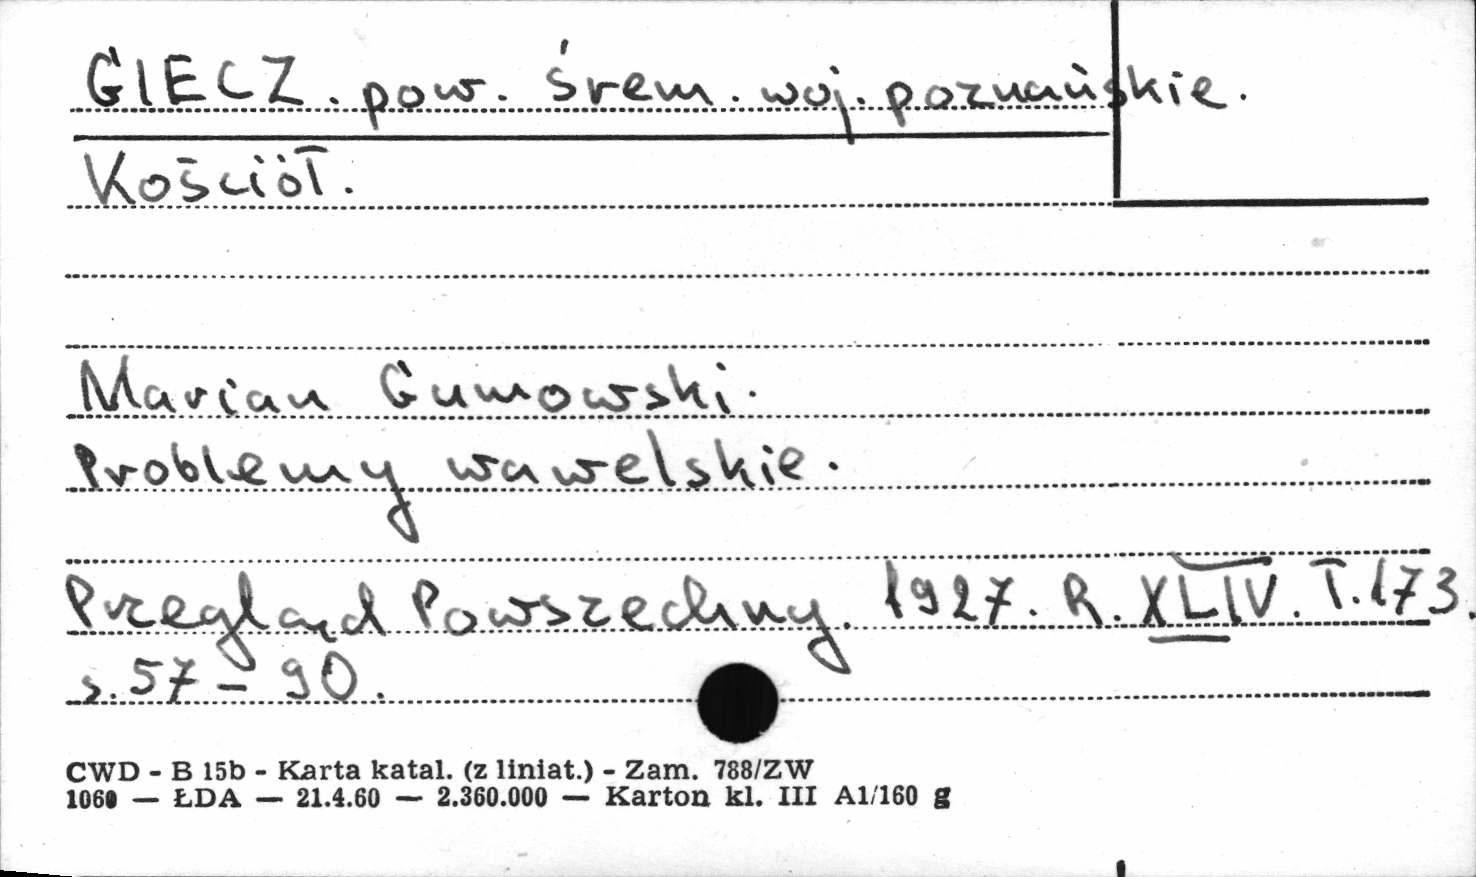 GIECZ. pow. Śrem. woj. poznańskie.
Kościół.
Marian Gumowski.
Problemy wawelskie.
Przegląd Powszechny. 1927. R. XLIV. T. 173.
s. 57 - 90.
CWD - B 15b - Karta katal. (z liniat.) - Zam. 788/ZW
1060 — ŁDA — 21.4.60 — 2.360.000 — Karton kl. III A1/160 g